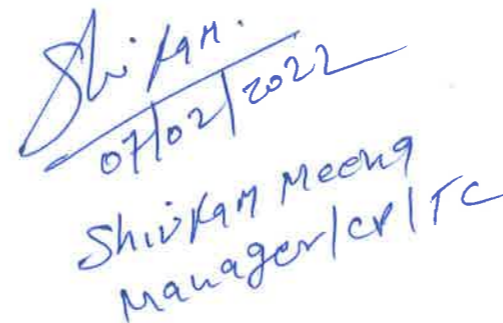 Shivram.
07/02/2022
Shivram Meena
Manager/CP/TC